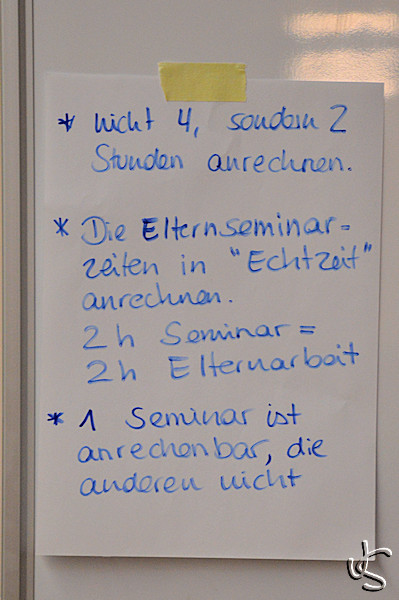 * nicht 4, sondern 2
Stunden anrechnen.
* Die Elternseminar=
zeiten in "Echtzeit"
anrechnen.
2 h Seminar =
2 h Elternarbeit
* 1 Seminar ist
anrechenbar, die
anderen nicht